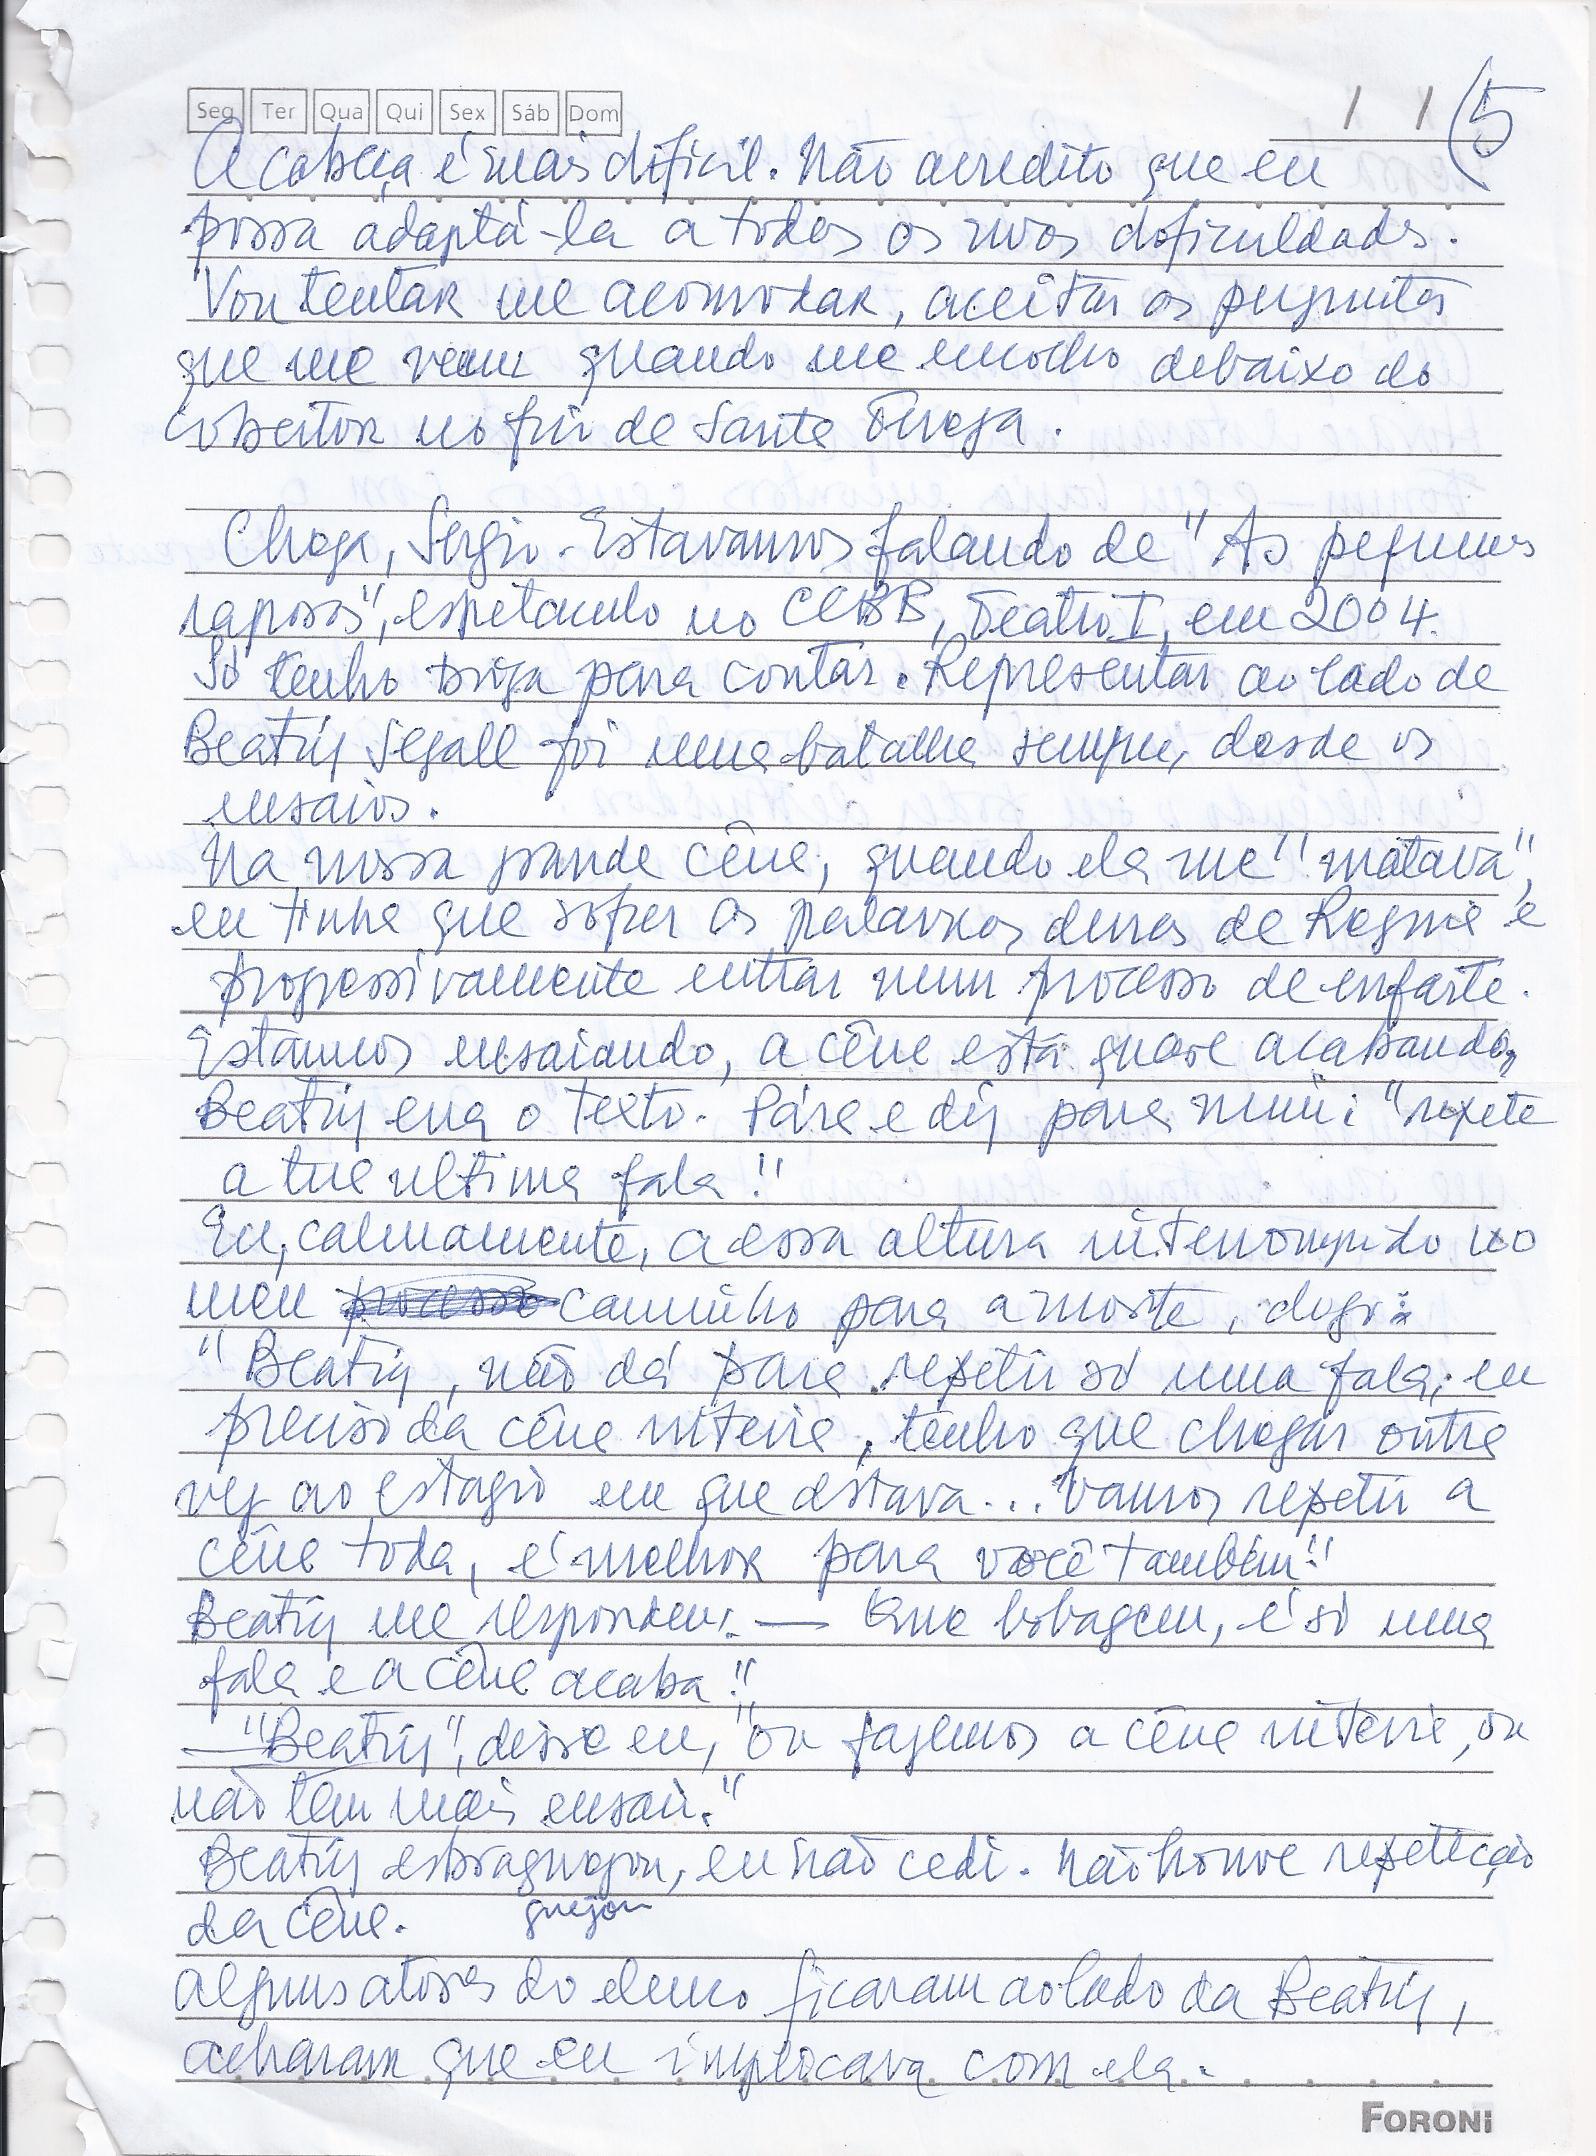 Seg Ter Qua Qui Sex Sáb Dom / / (5
A cabeça é mais difícil. Não acredito que eu
possa adaptá-la a todas as suas dificuldades.
Vou tentar me acomodar, aceitar as perguntas
que me vem quando me encolho debaixo do
cobertor no frio de Santa Tereza.
Chega, Sergio. Estavamos falando de "As pequenas
raposas", espetaculo no CCBB, Teatro I, em 2004.
Só tenho briga para contar. Representar ao lado de
Beatriz Segall foi uma batalha sempre, desde os
ensaios.
Na nossa grande cêna, quando ela me "matava",
eu tinha que sofrer as palavras duras de Regina e
progressivamente entrar num processo de enfarte.
Estamos ensaiando, a cêna está quase acabando,
Beatriz erra o texto. Pára e diz para mim: "repete
a tua ultima fala!"
Eu, calmamente, a essa altura interrompido no
meu caminho para a morte, digo:
"Beatriz, não dá para repetir só uma fala, eu
preciso da cêna inteira, tenho que chegar outra
vez ao estagio em que estava... Vamos repetir a
cêna toda, é melhor para você também!"
Beatriz me respondeu: — Que bobagem, é só uma
fala e a cêna acaba!"
— "Beatriz", disse eu, "ou fazemos a cêna inteira, ou
não tem mais ensaio."
Beatriz esbraguejou, eu não cedi. Não houve repetição
guejou
da cêna.
Alguns atores do elenco ficaram ao lado da Beatriz,
acharam que eu implicava com ela.
FORONI